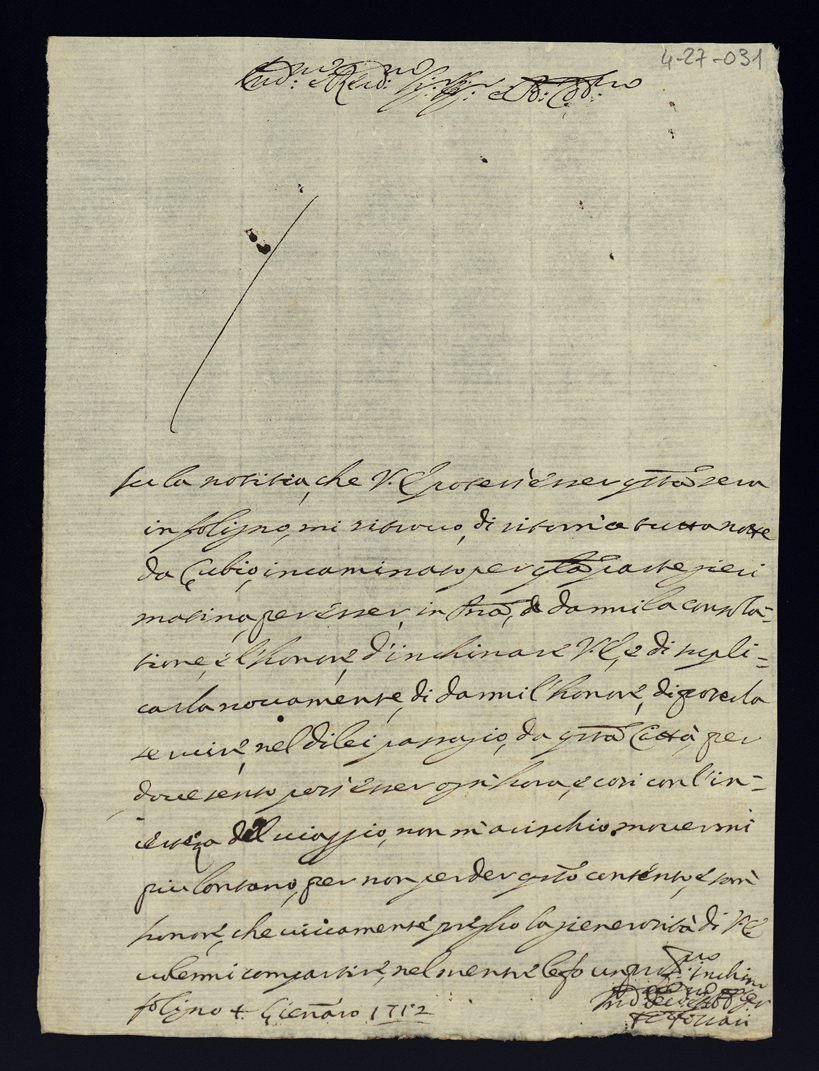 4-27-031
Ill.mo e Rev.mo Sig.r Sig.r e P.ron Col.mo
Su la notitia, che V. E. potess'esser q.sta sera
in foligno, mi ritrovo, di ritorno tutta notte
da Gubio, incaminato per q.sta parte, jeri
matina, per esser, in t.ra, e darmi la consola=
tione, e l'honore, d'inchinare V. E., e di supli=
carla novamente, di darmi l'honore, di poterla
servire, nel di lei passagio, da q.sta Città, per
dove sento poss'esser ogn'hora, e così con l'in=
certeza del viaggio, non m'arischio movermi
più lontano, per non perder q.sto contento, e tant'
honore, che vivamente priegho la gienerosità di V. E.
volermi compartire, nel mentre le fo un prof.mo inchino
foligno 4 Giennaro 1712